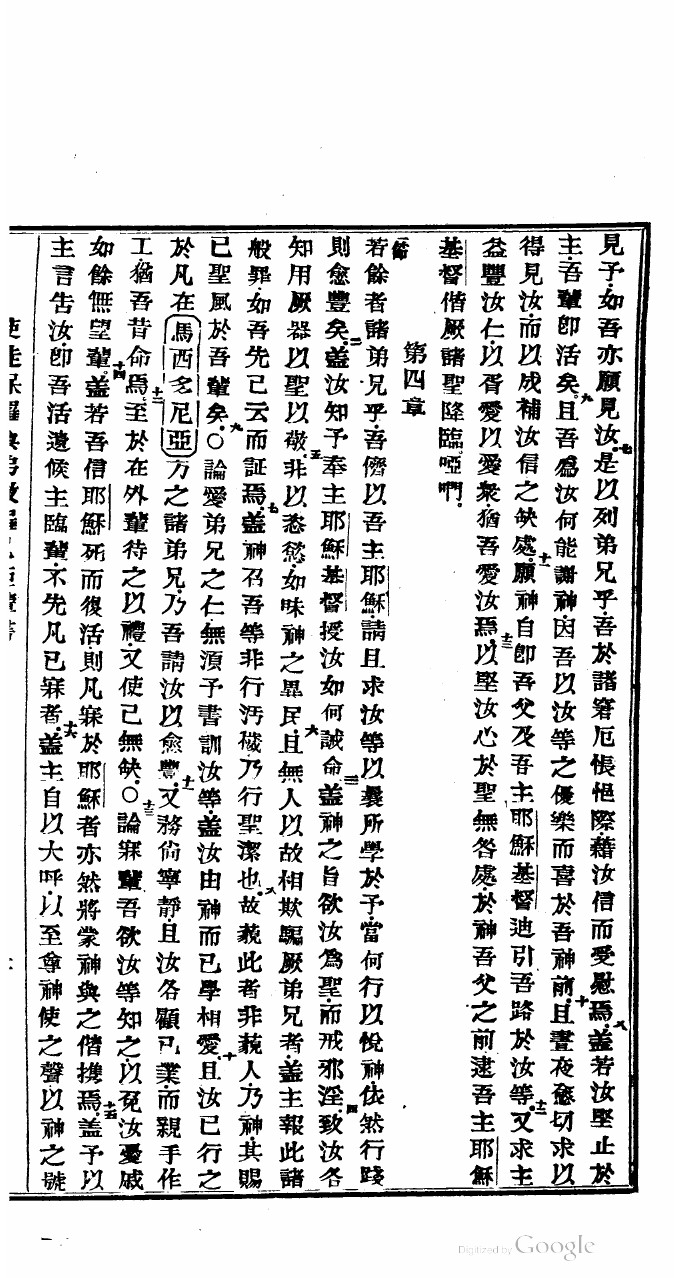 見予如吾亦願見汝七是以列弟兄乎吾於諸窘厄悵悒際藉汝信而受慰焉八蓋若汝堅止於
主吾輩卽活矣九且吾爲汝何能謝神因吾以汝等之優樂而喜於吾神前十且晝夜愈切求以
得見汝而以成補汝信之缺處十一願神自卽吾父及吾主耶穌基督迪引吾路於汝等十二又求主
益豐汝仁以胥愛以愛衆猶吾愛汝焉十三以堅汝心於聖無咎處於神吾父之前逮吾主耶穌
基督偕厥諸聖降臨啞㗿
第四章
一節若餘者諸弟兄乎吾儕以吾主耶穌請且求汝等以曩所學於予當何行以悅神依然行踐
則愈豐矣二蓋汝知予奉主耶穌基督授汝如何誡命三蓋神之旨欲汝爲聖而戒邪淫四致汝各
知用厥器以聖以敬五非以恣慾如昧神之異民六且無人以故相欺騙厥弟兄者蓋主報此諸
般罪如吾先已云而証焉七蓋神召吾等非行污穢乃行聖潔也八故藐此者非藐人乃神其賜
已聖風於吾輩矣九〇論愛弟兄之仁無須予書訓汝等蓋汝由神而已學相愛十且汝已行之
於凡在馬西多尼亞方之諸弟兄乃吾請汝以愈豐十一又務尙寧靜且汝各顧己業而親手作
工猶吾昔命焉十二至於在外輩待之以禮又使己無缺十三〇論寐輩吾欲汝等知之以免汝憂戚
如餘無望輩十四蓋若吾信耶穌死而復活則凡寐於耶穌者亦然將蒙神與之偕携焉十五蓋予以
主言告汝卽吾活遺候主臨輩不先凡已寐者十六蓋主自以大呼以至尊神使之聲以神之號
Digitized by Google